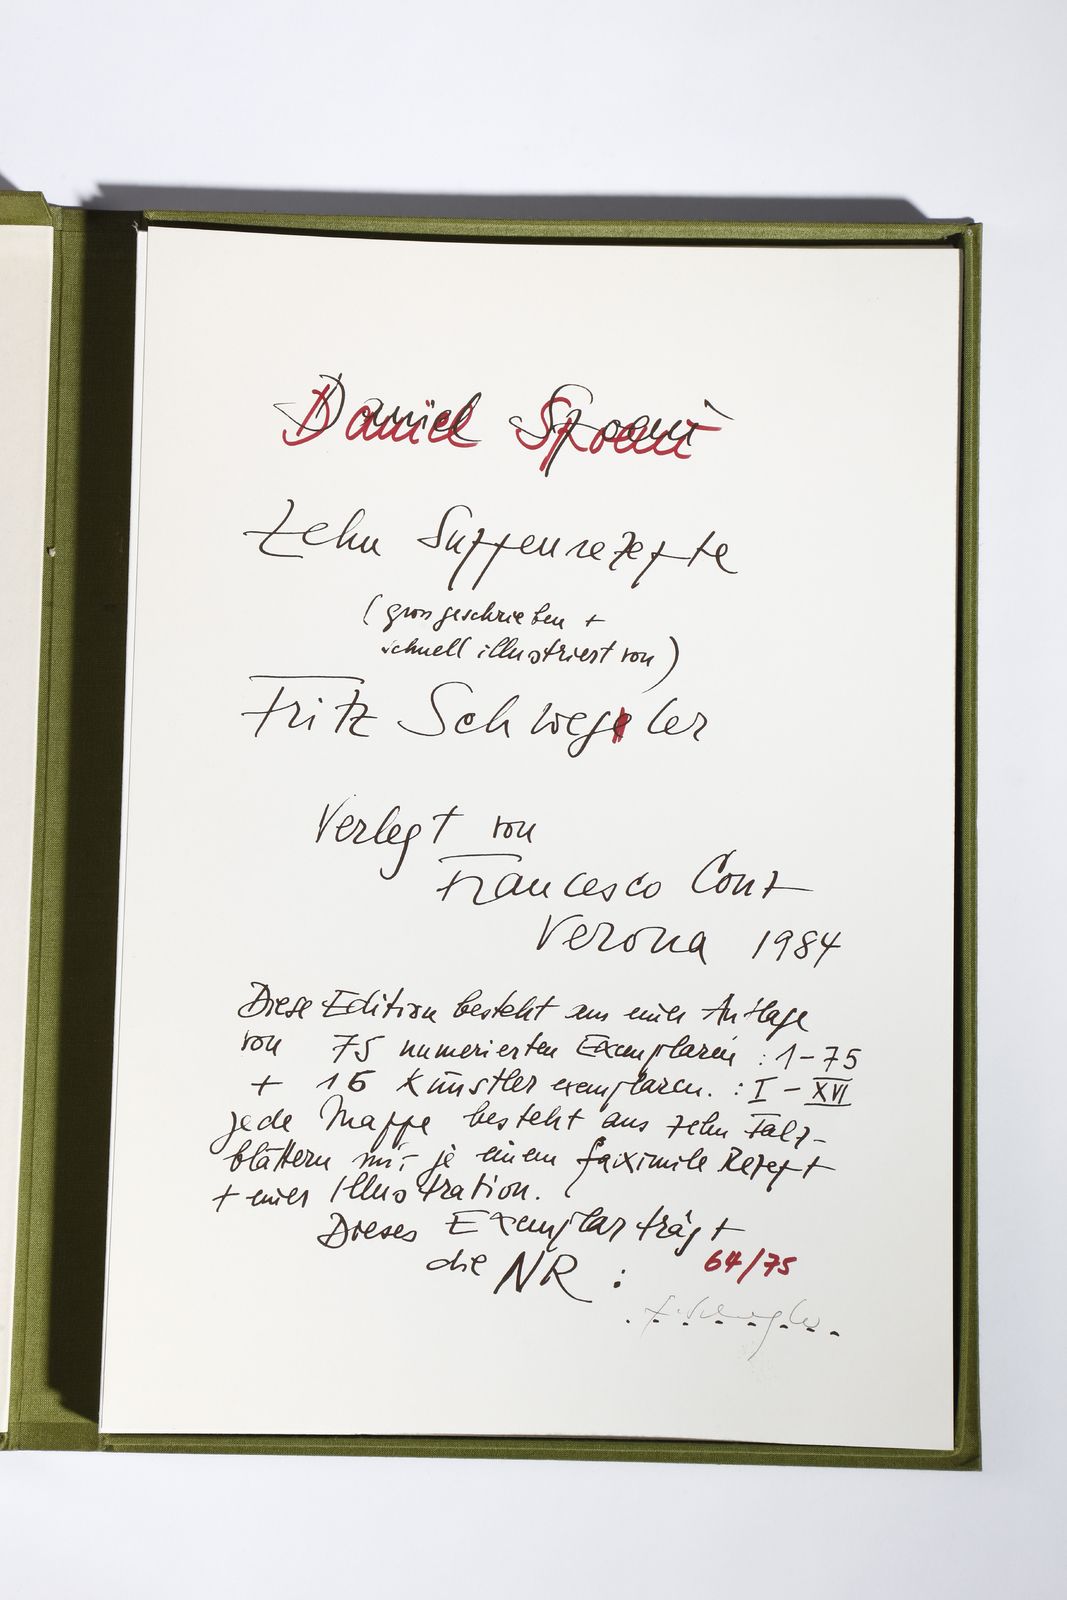 Daniel Spoerri
Zehn Suppenrezepte
(grossgeschrieben +
schnell illustriert von)
Fritz Schwegler
Verlegt von
Francesco Conz
Verona 1984
Diese Edition besteht aus einer Auflage
von 75 numerierten Exemplaren : 1-75
+ 16 Künstlerexemplaren. : I - XVI
jede Mappe besteht aus zehn Falz-
blättern mit je einem faximile Rezept
+ einer Illustration.
Dieses Exemplar trägt
die NR : 64/75
F. Schwegler